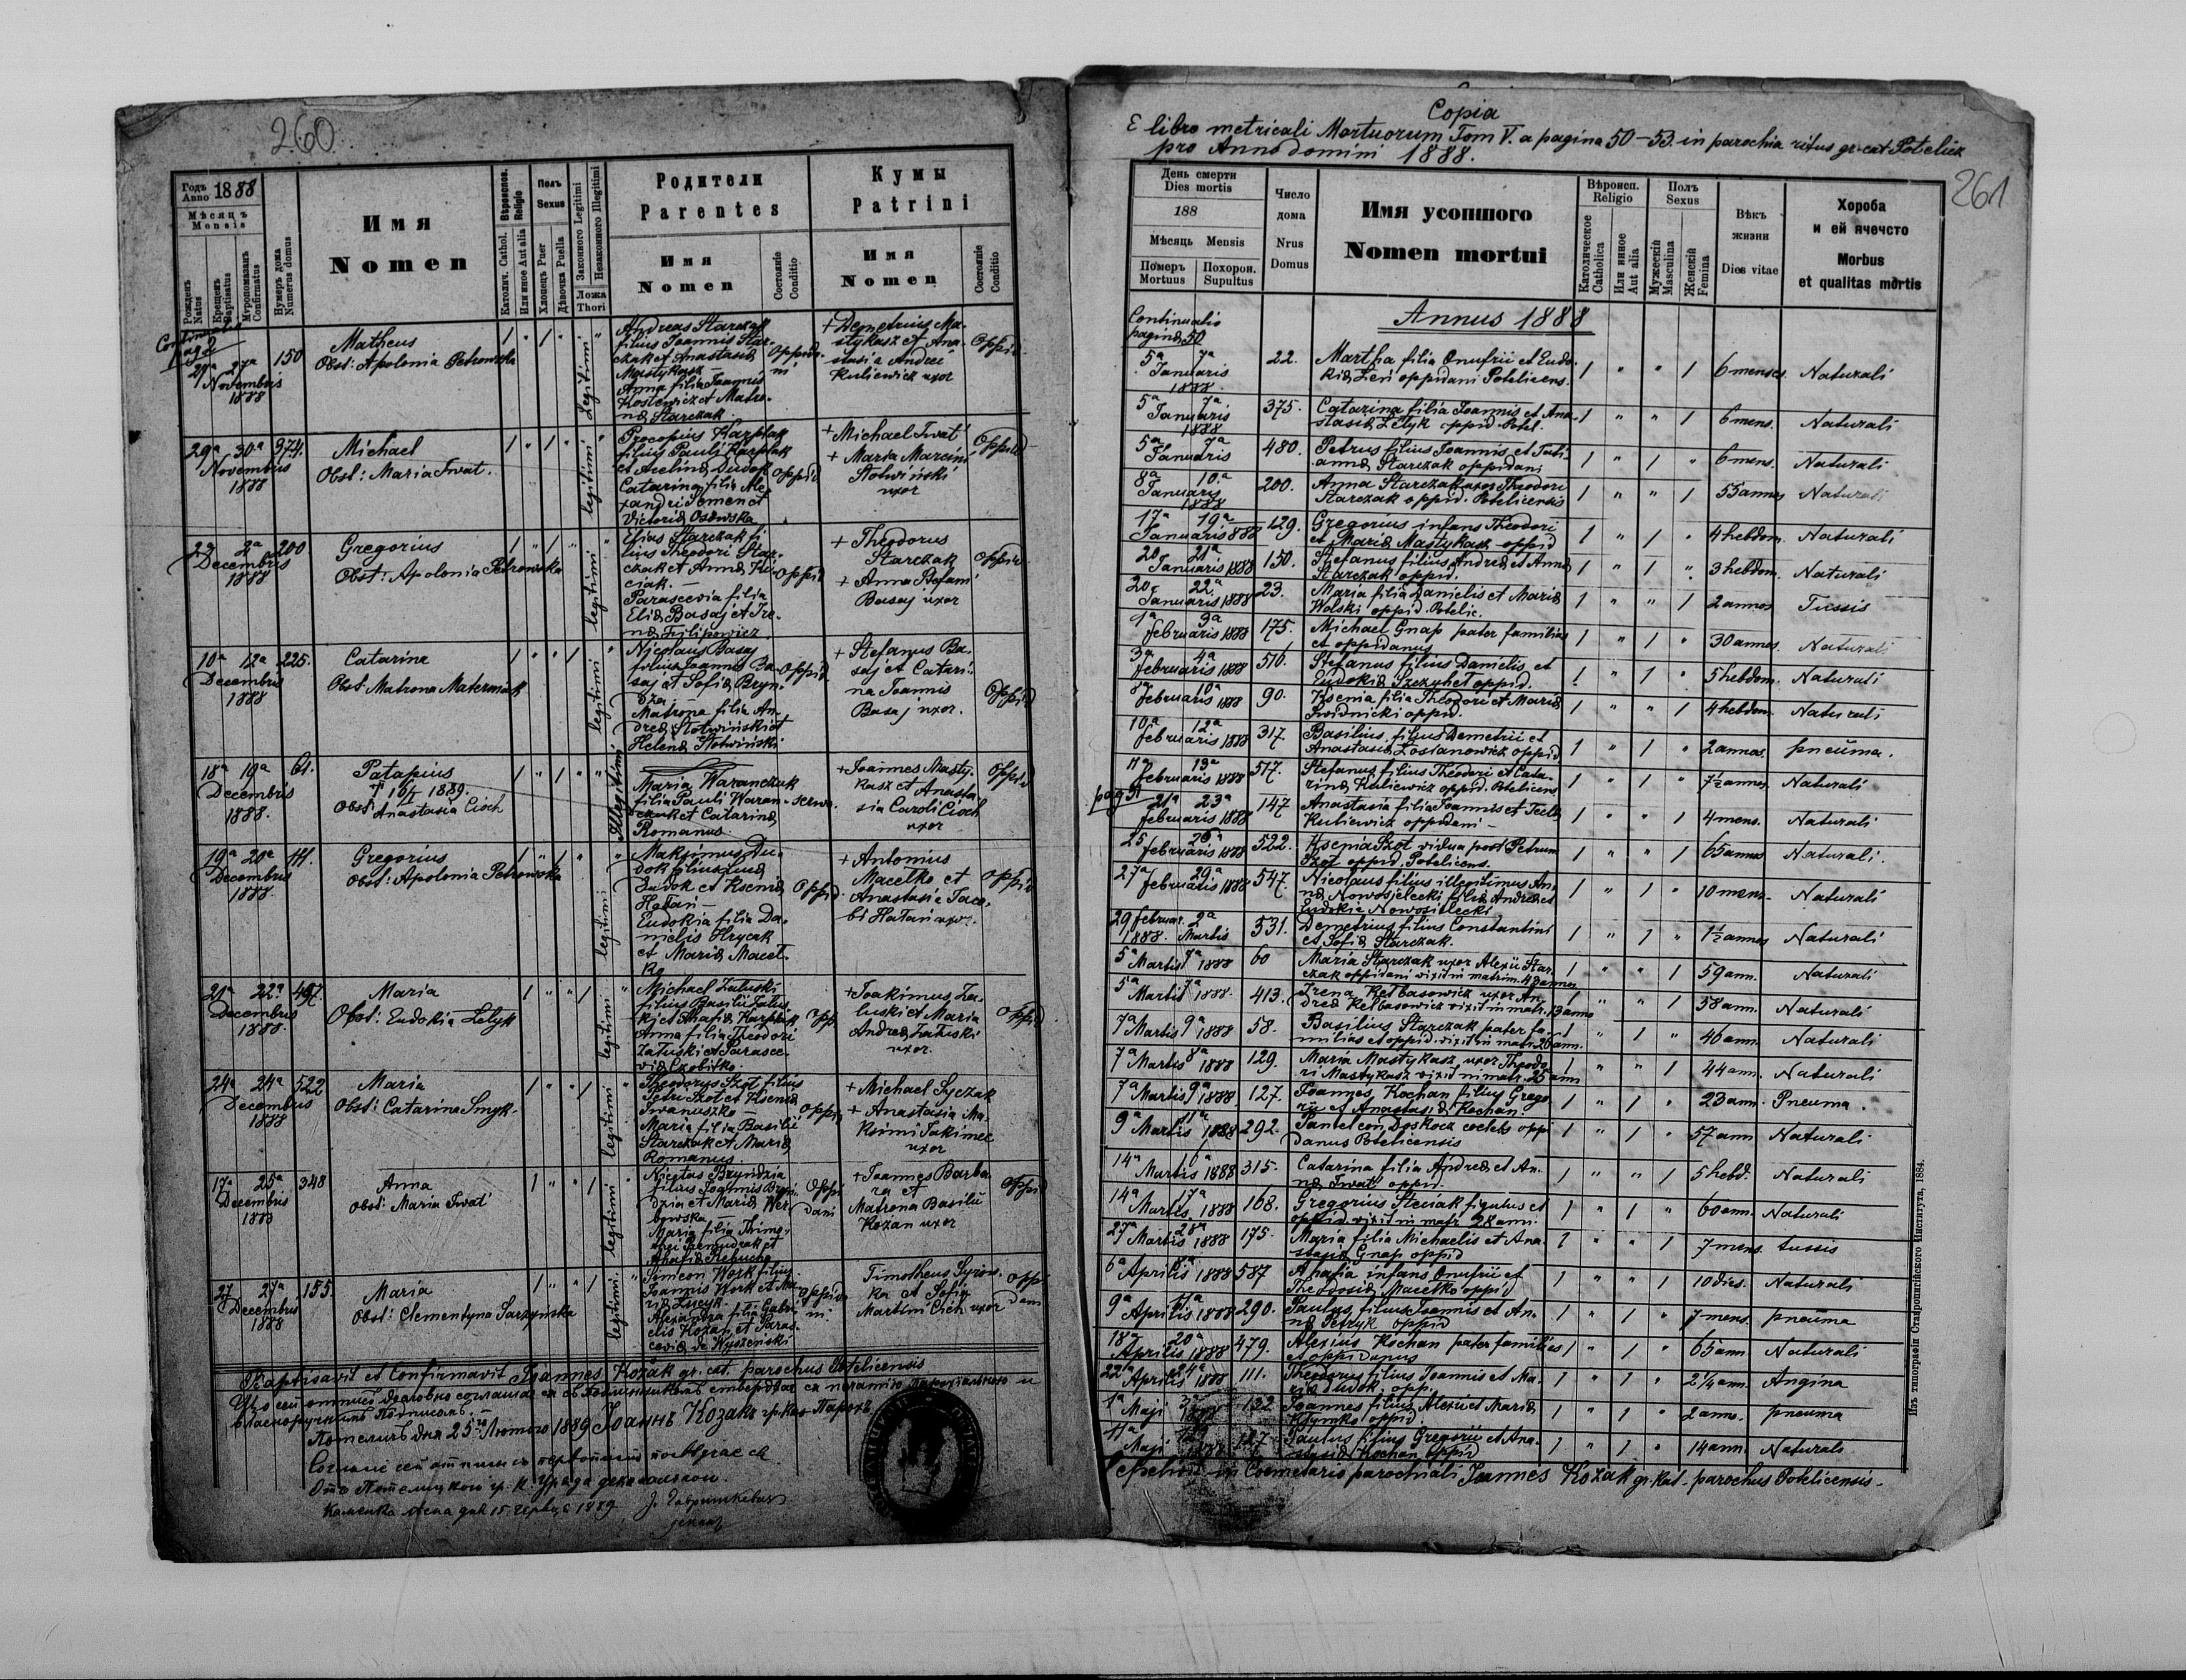 260
Годъ Anno 1888
Мѣсяцъ
Mensis
Рожденъ Natus
Крещенъ Baptisatus
Муропомазанъ Confirmatus
Нумеръ дома Numerus domus
Имя
Nomen
Вѣроиспов. Religio
Католич. Cathol.
Или иное Aut alia
Полъ
Sexus
Хлопецъ Puer
Дѣвочка Puella
Законного Legitimi
Незаконного Illegitimi
Ложа
Thori
Родители
Parentes
Имя
Nomen
Состояніе Conditio
Кумы
Patrini
Имя
Nomen
Состояніе Conditio
27ª 27ª Novembris 1888
150
Matheus
Obst: Apolonia Petrowska
legitimi
Andreas Starczak
filius Joannis Star-
czak et Anastasiæ
Mastykasz –
Anna filia Joannis
Kostewicz et Matro-
næ Starczak.
Oppida-
ni
+ Demetrius Ma-
stykasz et Ana-
stasia Andreæ
Kuliewicz uxor
Oppid.
29ª 30ª Novembris 1888
374.
Michael
Obst: Maria Iwat.
legitimi
Procopius Karplak
filius Pauli Karplak
et Acelinæ Dudok
Catarina filia Ale-
xandri Semen et
Victoriæ Osowska
Oppid
+ Michael Iwat
+ Maria Marcini
Stotwiński
uxor
Oppid
2ª 2ª Decembris 1888
200
Gregorius
Obst: Apolonia Petrowska
legitimi
Elias Starczak fi-
lius Theodori Star-
czak et Annæ Ku-
ciak. –
Parascevia filia
Eliæ Basaj et Ire-
næ Filipowicz.
Oppid
+ Theodorus
Starczak
+ Anna Stefani
Basaj uxor
Oppid
10ª 12ª Decembris 1888
225.
Catarina
Obst: Matrona Maternak
legitimi
Nicolaus Basaj
filius Joannis Ba-
saj et Sofiæ Bryn-
dza
Matrona filia An-
dreæ Stotwiński et
Helenæ Stotwiński
Oppid
+ Stefanus Ba-
saj et Catari-
na Joannis
Basaj uxor.
Oppid
18ª 19ª Decembris 1888.
61.
Patapius
Obst: Anastasia Cioch
Illegitimi
Maria Waranczuk
filia Pauli Waran-
czuk et Catarinæ
Romanus.
serva.
+ Joannes Masty-
kasz et Anasta-
sia Caroli Cioch
uxor
Oppid
19ª 20ª Decembris 1888.
Gregorius
Obst: Apolonia Petrowska
legitimi
Maksimus Du-
dok filius
Dudok et Kseniæ
Hatan –
Eudokia filia Da-
nielis Hrycak
et Mariæ Macet-
ko
Oppid
+ Antonius
Macetko et
Anastasia Jaco-
bi Hatan uxor.
Oppid
21ª 22ª Decembris 1888.
Maria
Obst: Eudokia Letyk
legitimi
Michael Zatuski
filius Basilii Zatus-
ki et Ahafiæ Karplak
Anna filia Theodori
Zatuski et Parasce-
viæ Czobitko.
Opp.
+ Joakimus Za-
tuski et Maria
Andreæ Zatuski
uxor.
Oppid
24ª 24ª Decembris 1888
522
Maria
Obst: Catarina Smyk.
legitimi
Theodorus Szot filius
Petri Szot et Kseniæ
Iwanuszko –
Maria filia Basilii
Starczak et Mariæ
Romanus
Oppid
+ Michael Syczak
+ Anastasia Ma-
ksimi Jakimec
uxor
17ª 25ª Decembris 1888
348
Anna
Obst: Maria Iwat
legitimi
Nicetas Bryndzia
filius Joannis Bryn-
dzia et Mariæ Wer-
bowska –
Maria filia Thimo-
thei Premudrak et
Ahafiæ
Oppi
dani
+ Joannes Barba-
ra et
Matrona Basilii
Kozan uxor
Oppid
27 27ª Decembris 1888
155.
Maria
Obst: Clementyna Sarzynska
legitimi
Simeon Work filius
Joannis Work et Ma-
riæ
Alexandra filia Gabri-
elis Kozan et Paras-
ceviæ de Kyszeniski
Oppida-
ni
Timotheus
et Sofia
Martini Cich uxor
Opp
dani
Baptisavit et Confirmavit Joannes Kozak gr. cat. parochus Potelicensis
Що сей отписъ дословно согласуеся съ подлинникомъ стверджаю ся печатію парохіальною и
власноручнымъ подписомъ. –
Потеличъ дня 25го Лютого 1889 Іоаннъ Козакъ гр. кат. Парохъ
Отъ Потелицкого гр. к. Уряда деканального.
1889
Copia
E libro metricali Mortuorum Tom V. a pagina 50–53. in parochia ritus gr. cat Potelicz
pro Anno domini 1888.
261
День смерти
Dies mortis
188
Мѣсяць Mensis
Померъ Mortuus
Похорон. Supultus
Число дома
Nrus Domus
Имя усопшого
Nomen mortui
Вѣроисп.
Religio
Католическое Catholica
Или инное Aut alia
Полъ
Sexus
Мужескій Masculina
Женскій Femina
Вѣкъ жизни
Dies vitae
Хороба
и ей ячечсто
Morbus
et qualitas mortis
Continuatio
pagina 50
Annus 1888
5ª 7ª Januaris 1888. 22. Martha filia Onufrii et Eudo-
kiæ Leń oppidani Potelicens. 1 " " 1 6 menses Naturali
5ª 7ª Januaris 1888 375. Catarina filia Joannis et Ana-
stasiæ Letyk oppid. Potel. 1 " " 1 6 mens. Naturali
5ª 7ª Januaris 480. Petrus filius Joannis et Tati-
annæ Starczak oppidani 1 " 1 " 6 mens. Naturali
8ª 10.ª Januaris 1888 200. Anna Starczak uxor Theodori
Starczak oppid. Potelicensis 1 " " 1 55 annos Naturali
17ª 19ª Januaris 888 129. Gregorius infans Theodori
et Mariæ Mastykasz oppid 1 " 1 " 4 hebdom. Naturali
20 21ª Januaris 1888 150. Stefanus filius Andreæ et Annæ
Starczak oppid. 1 " 1 " 3 hebdom. Naturali
20 22ª Januaris 1888 23. Maria filia Danielis et Mariæ
Wolski oppid. Potelic. 1 " " 1 2 annos Tussis
1ª 3ª februaris 1888 175. Michael Gnap pater familias
et oppidanus 1 " 1 " 30 annos. Naturali
3ª 4ª februaris 1888 516. Stefanus filius Danielis et
Eudokiæ oppid. 1 " 1 " 5 hebdom. Naturali
8ª 10ª februaris 1888 90. Ksenia filia Theodori et Mariæ
Swidnicki oppid. 1 " " 1 4 hebdom. Naturali
10ª 12ª februaris 1888 317. Basilius filius Demetrii et
Anastasiæ Lostanowicz oppid 1 " 1 " 2 annos. pneuma.
11ª 13ª februaris 1888 517. Stefanus filius Theodori et Cata-
rinæ Kuliewicz oppid. Potelicens 1 " 1 " 7½ annos Naturali
pag 51
21ª 23ª februaris 1888 147 Anastasia filia Joannis et Teclæ
Kuliewicz oppidani – 1 " " 1 4 mens. Naturali
25 26ª februaris 1888 522. Ksenia Szot vidua post Petrum
Szot oppid. Potelicens. 1 " " 1 65 annos Naturali.
27ª 29ª februaris 1888 547. Nicolaus filius illegitimus An-
næ Nowosielecki filiæ Andreæ et
Eudokiæ Nowosielecki 1 " 1 " 10 mens. Naturali
29 februar. 1888. 2ª Martis 531. Demetrius filius Constantini
et Sofiæ Starczak. 1 " 1 " 1½ annos Naturali
5ª Martis 7ª 1888 60 Maria Starczak uxor Alexii Star-
czak oppidani vixit in matrim. 43 annos 1 " " 1 59 ann. Naturali
5ª Martis 7ª 1888. 413. Irena Kełbasowicz uxor An-
dreæ Kełbasowicz vixit in matr. 13 anno 1 " " 1 38 ann. Naturali
7ª Martis 9ª 1888 58. Basilius Starczak pater fa-
milias et oppid. vixit in matr. 20 ann. 1 " 1 " 46 ann. Naturali
7ª Martis 8ª 1888 129. Maria Mastykasz uxor Theodo-
ri Mastykasz vixit in matr. 25 ann 1 " " 1 44 ann. Naturali
7ª Martis 9ª 1888. 127. Joannes Kochan filius Grego-
rii et Anastasiæ Kochan 1 " 1 " 23 ann. Pneuma.
9ª Martis 11ª 1888 292. Panteleon Doskocz coelebs oppi-
danus Potelicensis 1 " 1 " 57 ann Naturali
14ª Martis 1888 315. Catarina filia Andreæ et An-
næ Iwat oppid. 1 " " 1 5 hebd. Naturali
14ª 17ª Martis 1888 168. Gregorius Steciak figulus et
oppid. vixit in matr 28 ann. 1 " 1 " 60 ann. Naturali
27ª 28ª Martis 1888 175. Maria filia Michaelis et Ana-
stasiæ Gnap oppid 1 " " 1 7 mens. tussis
6ª Aprilis 8ª 1888 587 Ahafia infans Onufrii et
Theodosiæ Macetko oppid 1 " " 1 10 dies. Naturali
9ª Aprilis 11ª 1888 290. Paulus filius Joannis et An-
næ Petryk oppid 1 " 1 " 7 mens. pneuma
18ª 20ª Aprilis 1888 479. Alexius Kochan pater familias
et oppidanus 1 " 1 " 65 ann. Naturali
22ª 24ª Aprilis 1888 111. Theodorus filius Joannis et Ma-
riæ Dudok opp. 1 " 1 " 2¼ ann. Angina
1ª Maji 3ª 132 Joannes filius Alexii et Mariæ
Klymko oppid. 1 " 1 " 2 anno. pneuma
11ª Maji 1888 127 Paulus filius Gregorii et Ana-
stasiæ Kochan oppid 1 " 1 " 14 ann. Naturali
Sepelivit in Coemetario parochiali Joannes Kozak gr. kat. parochus Potelicensis –
Изъ типографіи Ставропигійского Института, 1884.